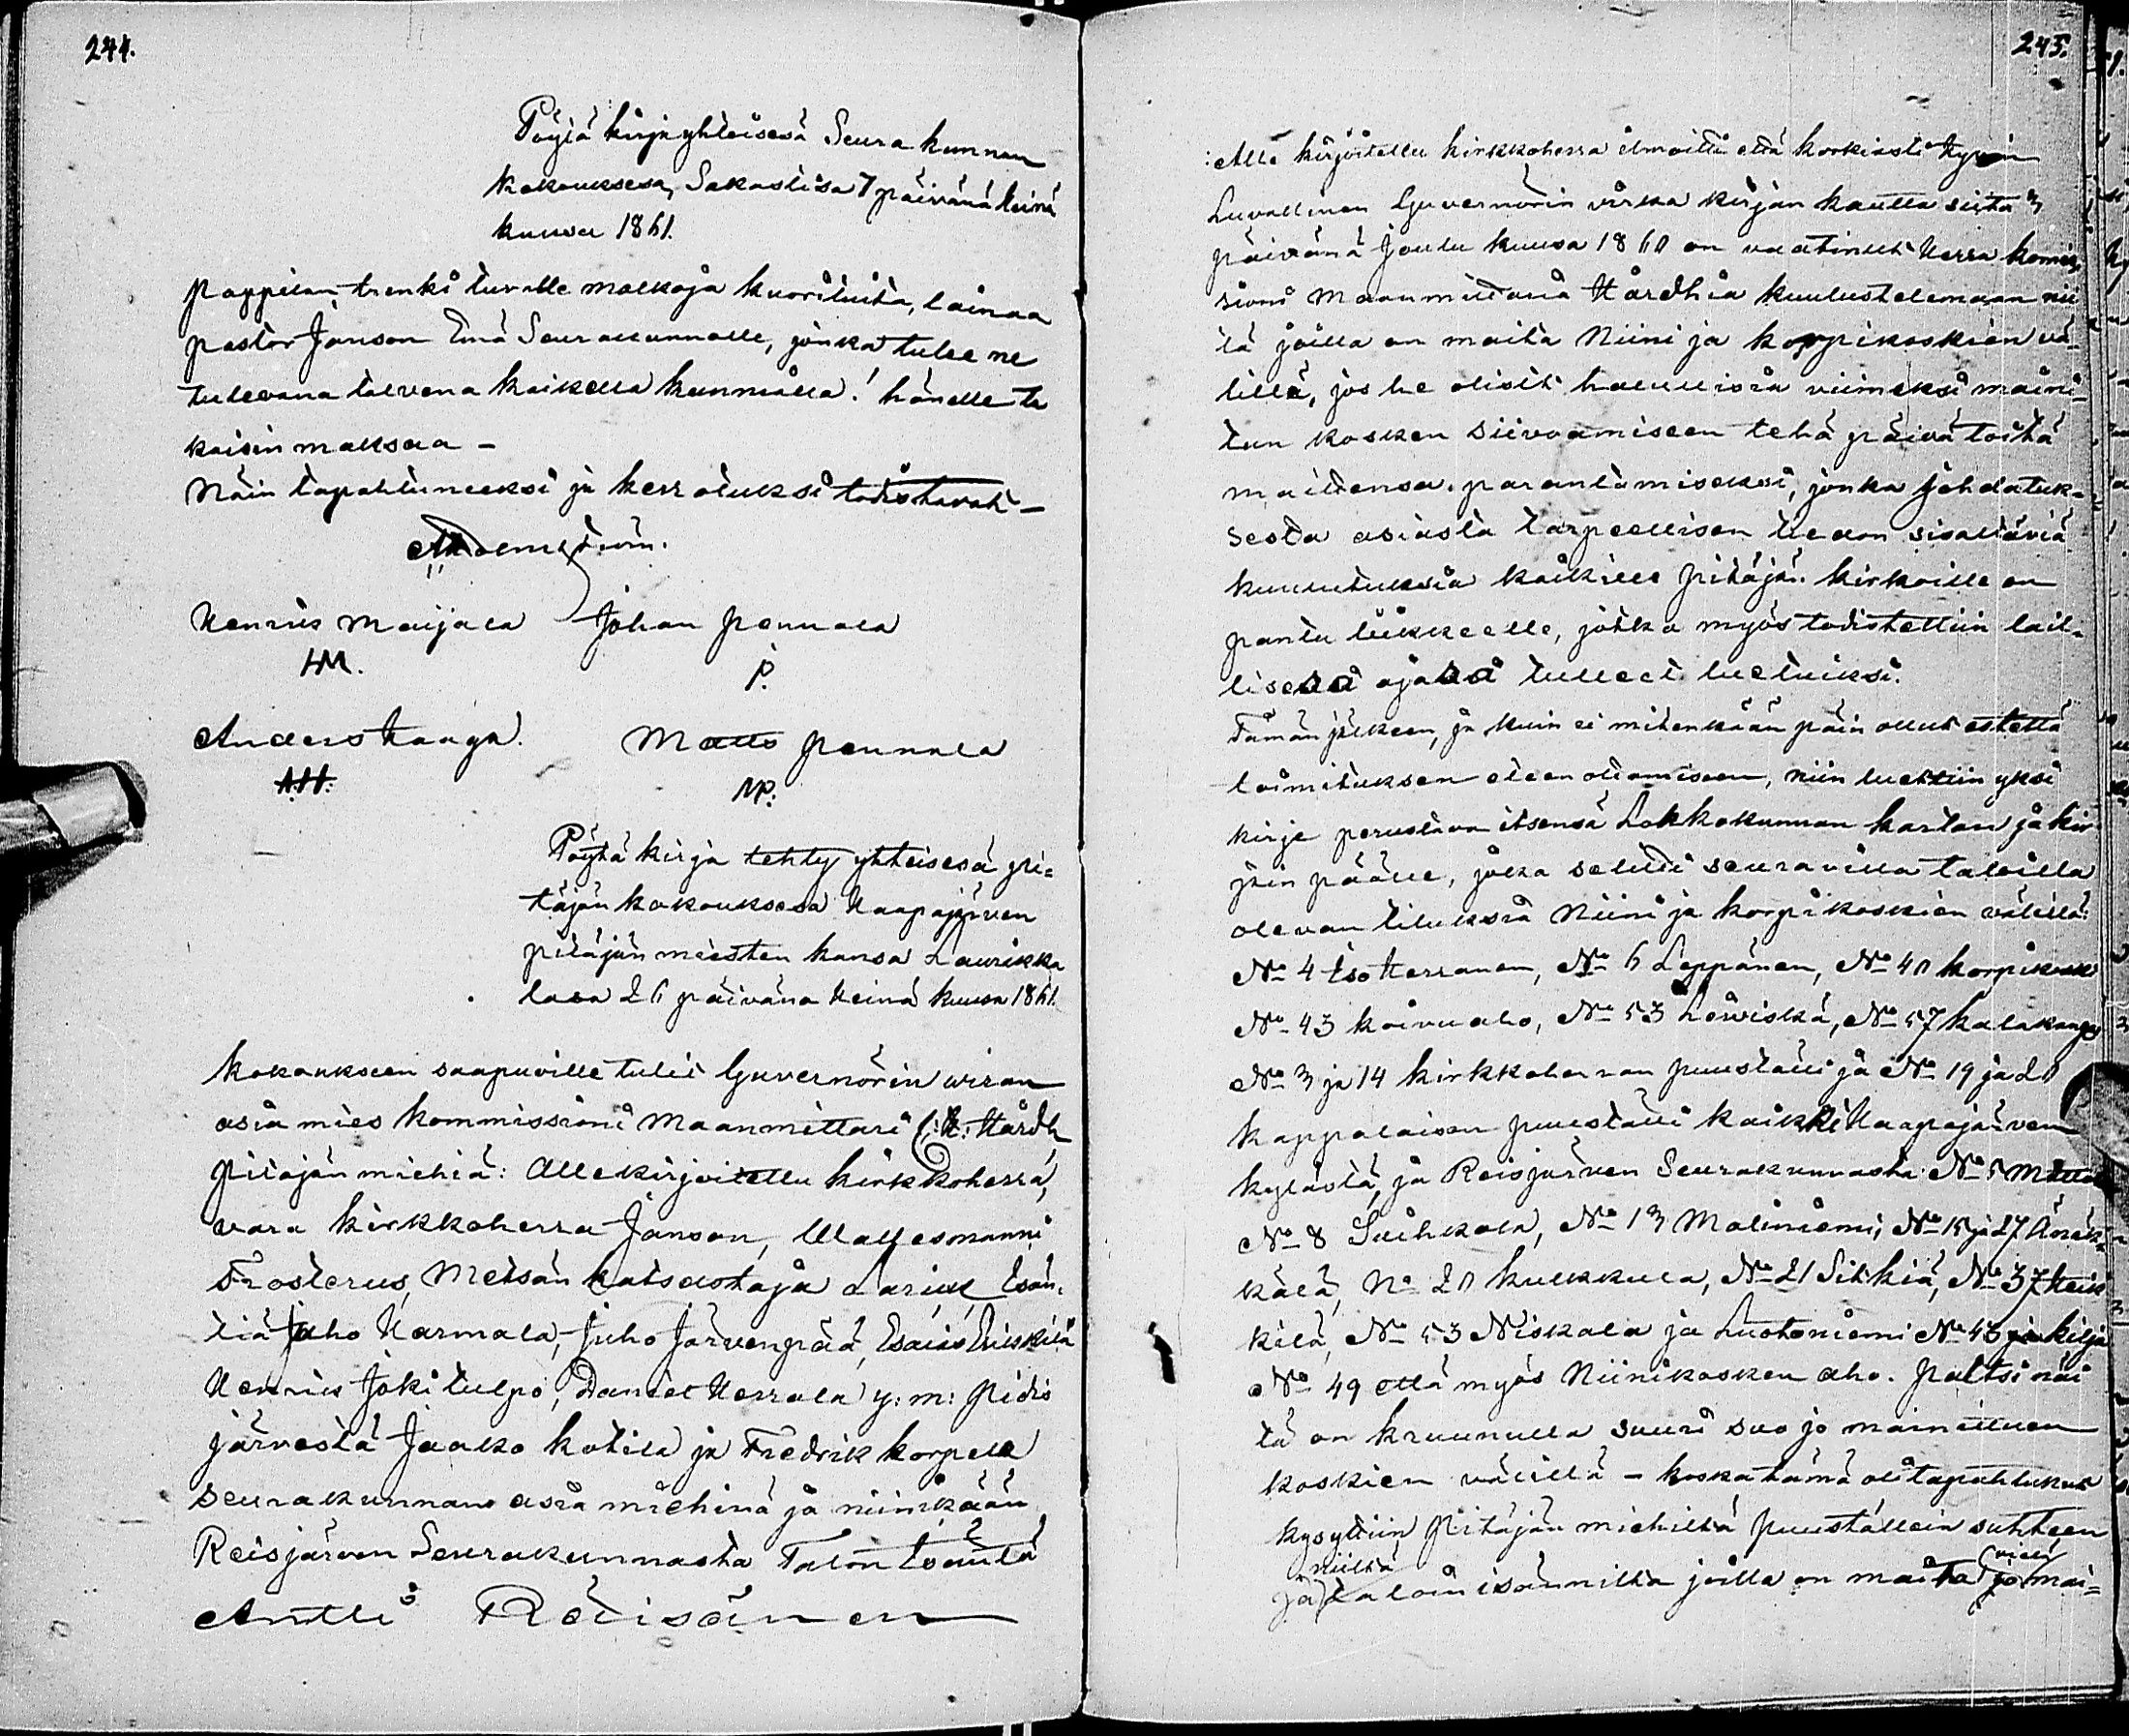 244.
Pöytä kirja yhteisesä Seura kunnan
Kokouksesa, Sakastisa 7 päivänä Heinä
kuusa 1861.
Pappilan trenki tuvalle malkoja kuorituita, lainaa
pastor Janson Emä Seurakunnalle, jonka tulee ne
tulevana talvena kaikella kunniälla! hänelle ta
kaisin maksaa –
Näin tapahtuneeksi ja kerrotuksi todistavat –
Henrics Maijala Johan Pennala
HM. P.
Anders Haaga. Matts Pennala
A.H. MP.
Pöytä kirja tehty yhteisesä pi=
täjän kokouksesa Haapajärven
pitäjän miesten kansa Laurikka
lasa 26 päivänä Heinä kuusa 1861.
Kokoukseen saapuville tulit Guvernörin wiran
asia mies kommissioni Maanmittari C: H: Hårdh
pitäjän miehiä: Allekirjoitettu kirkkoherra,
vara kirkkoherra Janson, Wallesmanni
Frosterus, Metsän katsastaja Larius, Isän,
tiä Juho Karmala, Juho Järvenpää, Esaias Eiskilä
Henrics Jokitulpo, Daniel Kerrala y: m: Pidis
järvestä Jaako Kotila ja Fredrik Korpela
seurakunnan asia miehinä ja niinikään
Reisjärven Seurakunnasta Talon Isäntä
Antti Räisänen
245.
Alle kirjoitettu kirkkoherra ilmoitti että korkiasti hyvin
Luvallinen Guvernörin virka kirjan kautta siitä 3
päivänä Joulu kuusa 1860 on vaatinut Herra komis,
sioni Maanmittaria Hårdhia kuulustelemaan nii
tä joilla on maita Niini ja korpikoskien vä-
lillä, jos he olisit halullisia viimeksi maini-
tun kosken siivoamiseen tehä päivä töitä
maittensa parantamiseksi, jonka johdatuk-
sesta asiasta tarpeellisen tiedon sisaltäviä
kuulutuksia kaikille Pitäjän kirkoille on
pantu liikkeelle, jotka myös todistettiin lail-
lisesä ajasa tulleet luetuiksi.
Tämän jälkeen, ja kuin ei mitenkään päin ollut estettä
toimituksen eteen ottamiseen, niin luettiin yksi
kirje perustava itsensä Lohkokunnan kartan ja kir
jain päälle, joka selitti seuravilla taloilla
olevan tiluksia Niini ja korpikoskien välillä:
No 4 Iso Kerranen, No 6 Leppänen, No 40 korpikoski
No 43 koivuaho, No 53 Lewiskä, No 57 kalakangas
No 3 ja 14 kirkkoherran puustalli ja No 19 ja 20
kappalaisen puustalli kaikki Haapajärven
kylästä, ja Reisjärven Seurakunnasta: No 5 Mattala
No 8 Suihkola, No 13 Maliniemi, No 15 ja 27 Änäk-
kälä, No 20 kukkula, No 21 Sitkiä, No 37 Heik
kilä, No 53 Niskala ja Luotoniemi No 43 ja kilja
No 49 että myös Niinikosken aho. Paitsi näi
tä on kruunulla suuri suo jo mainittuen
koskien välillä – koska tämä oli tapahtunut
kysyttiin Pitäjän miehiltä puustallein suhteen
niiltä vielä
ja taloin isänniltä joilla on maita jo mai=